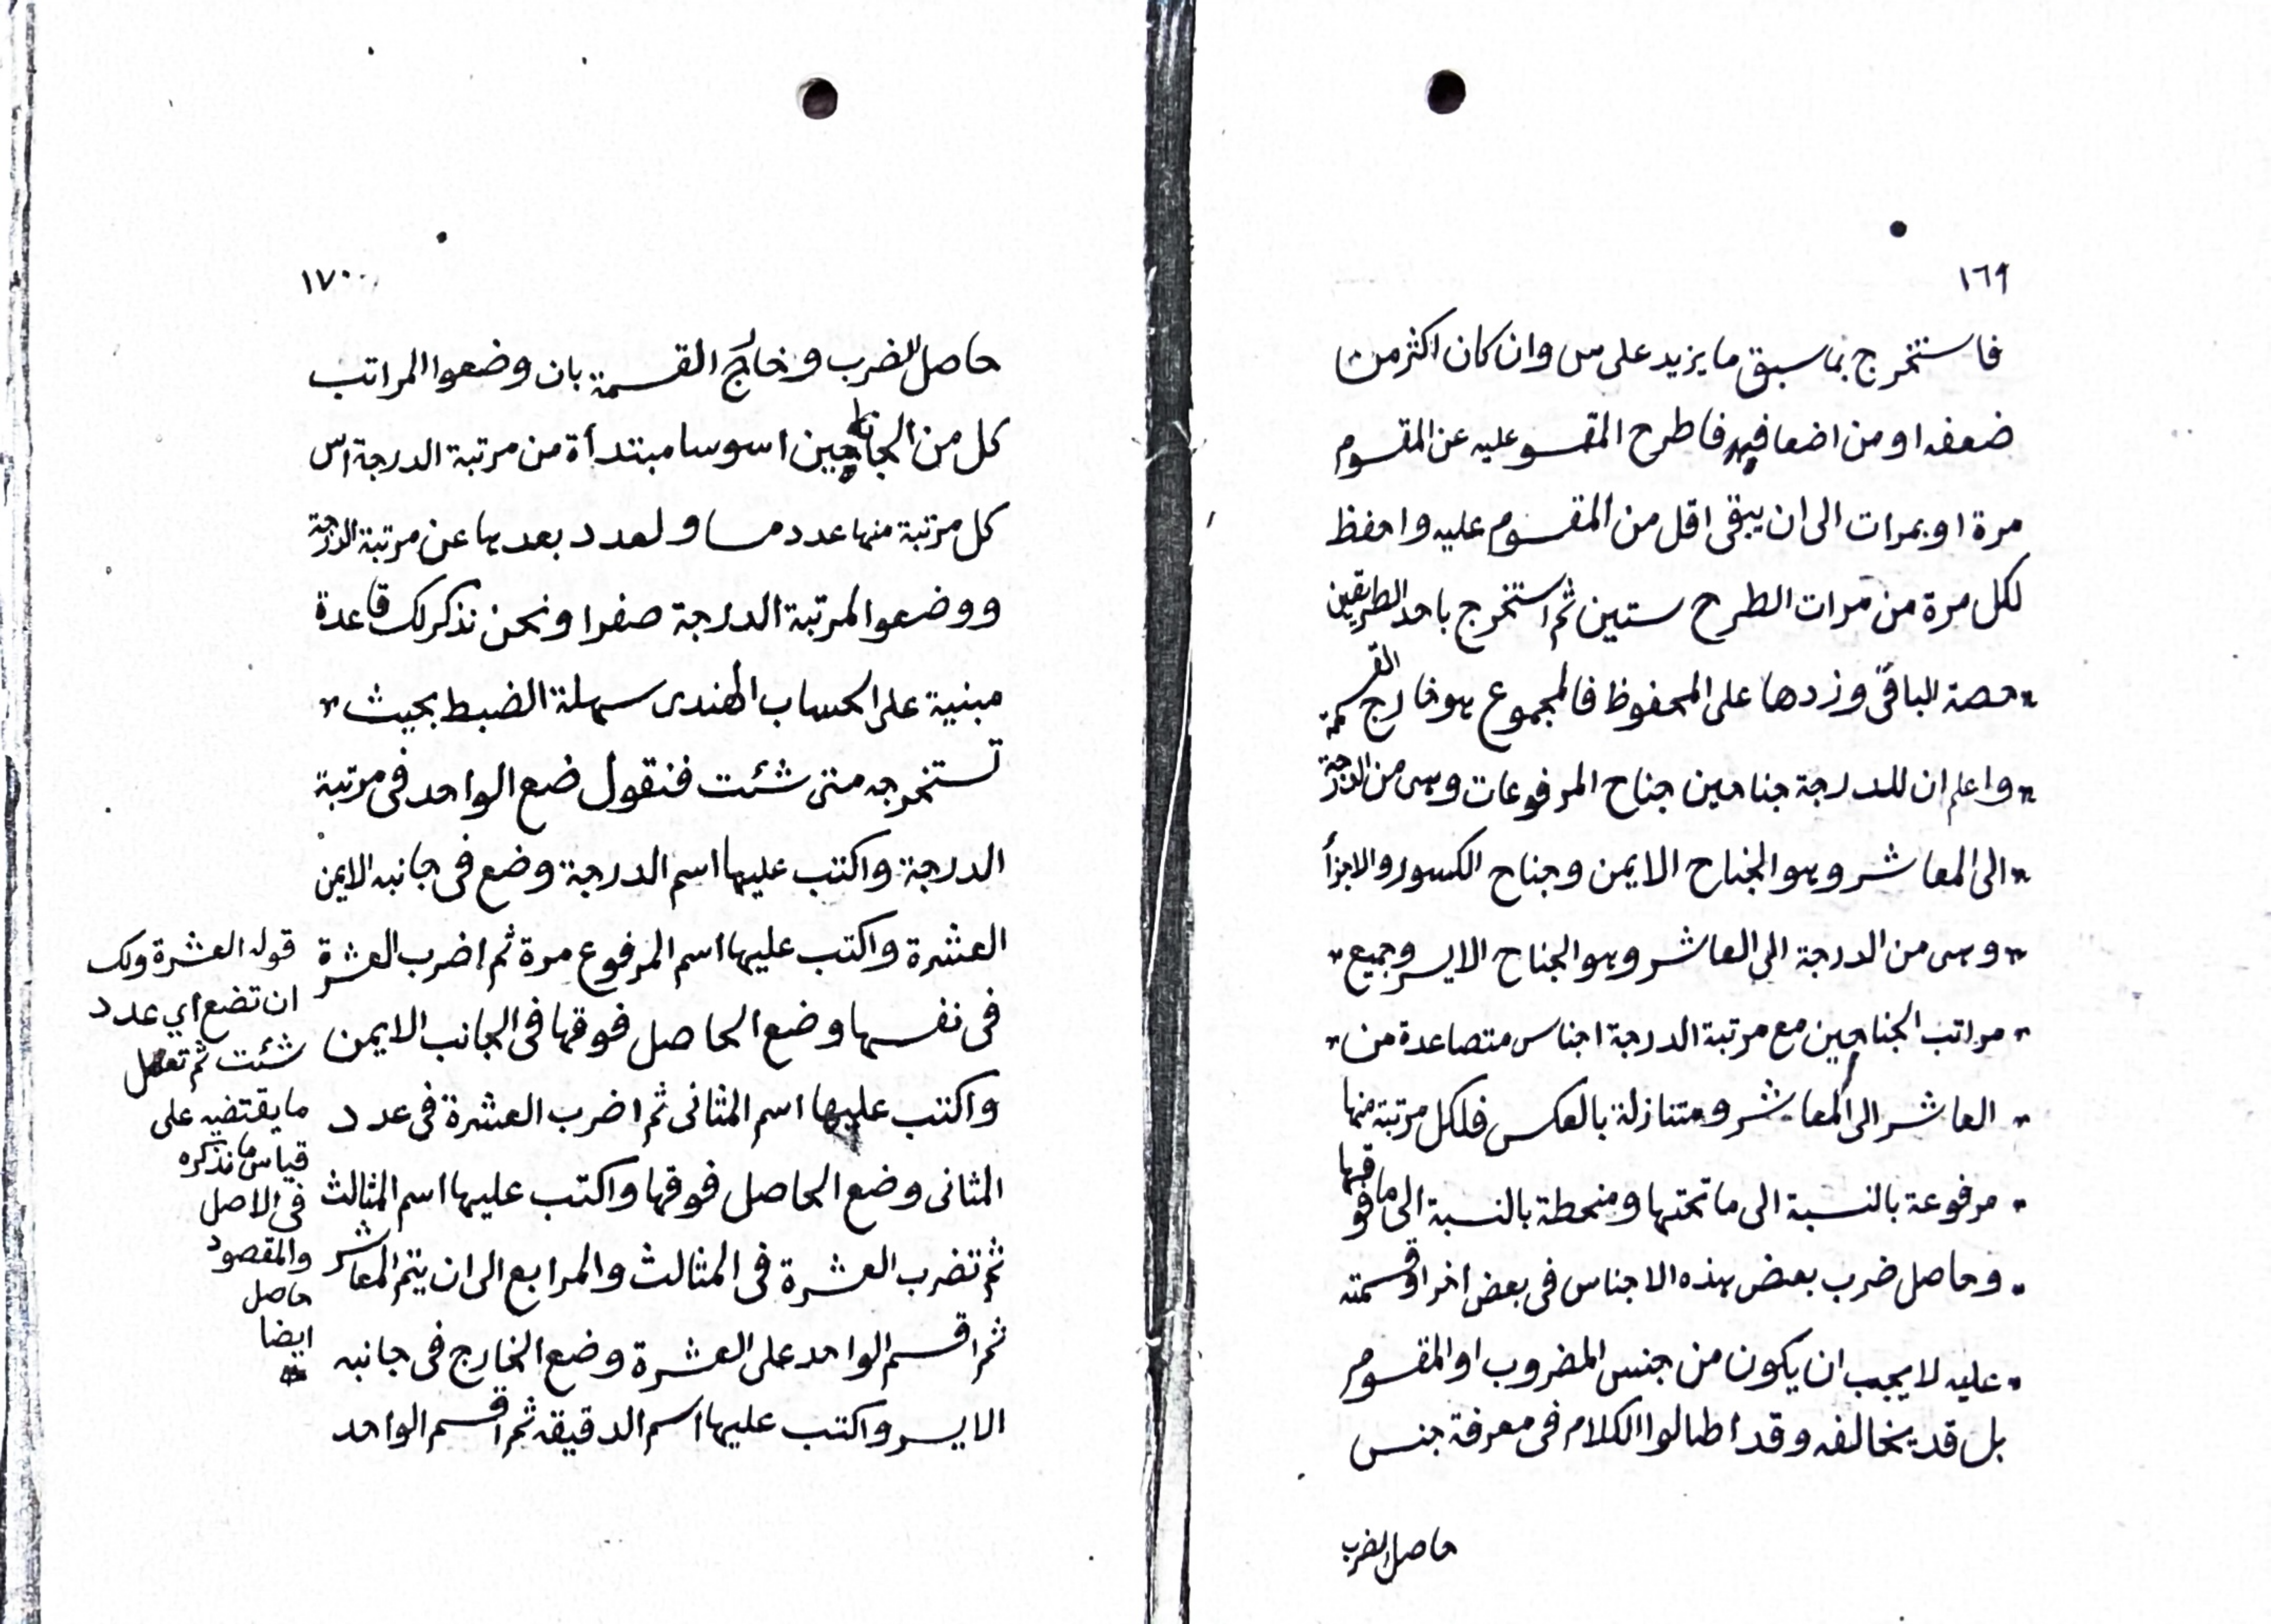 ١٦٩
فاستخرج بما سبق ما يزيد على س وان كان اكثر من
ضعفه او من اضعافه فاطرح المقسوم عليه عن المقسوم
مرة او بمرات الى ان يبقى اقل من المقسوم عليه واحفظ
لكل مرة من مرات الطرح ستين ثم استخرج باحد الطريقين
حصة الباقى وزدها على المحفوظ فالمجموع هو خارج القسمة
واعلم ان للدرجة جناحين جناح المرفوعات وهى من الدرجة
الى المعاشر وهو الجناح الايمن وجناح الكسور والاجزأ
وهى من الدرجة الى العاشر وهو الجناح الايسر وجميع
مراتب الجناحين مع مرتبة الدرجة اجناس متصاعدة من
العاشر الى المعاشر ومتنازلة بالعكس فلكل مرتبة منها
مرفوعة بالنسبة الى ما تحتها ومنحطة بالنسبة الى ما فوقها
وحاصل ضرب بعض هذه الاجناس فى بعض اخر او قسمته
عليه لا يجب ان يكون من جنس المضروب او المقسوم
بل قد يخالفه وقد اطالوا الكلام فى معرفة جنس
حاصل الضرب
١٧٠
حاصل الضرب وخارج القسمة بان وضعوا المراتب
كل من الجناحين اسوسا مبتدأة من مرتبة الدرجة اس
كل مرتبة منها عدد مساو لعدد بعدها عن مرتبة الدرجة
ووضعوا لمرتبة الدرجة صفرا ونحن نذكر لك قاعدة
مبنية على الحساب الهندى سهلة الضبط بحيث
تستخرجه متى شئت فنقول ضع الواحد فى مرتبة
الدرجة واكتب عليها اسم الدرجة وضع فى جانبه الايمن
العشرة واكتب عليها اسم المرفوع مرة ثم اضرب العشرة
فى نفسها وضع الحاصل فوقها فى الجانب الايمن
واكتب عليها اسم المثانى ثم اضرب العشرة فى عدد
المثانى وضع الحاصل فوقها واكتب عليها اسم المثالث
ثم تضرب العشرة فى المثالث والمرابع الى ان يتم المعاشر
ثم اقسم الواحد على العشرة وضع الخارج فى جانبه
الايسر واكتب عليها اسم الدقيقة ثم اقسم الواحد
قوله العشرة ولك
ان تضع اي عدد
شئت ثم تعمل
ما يقتضيه على
قياس ما نذكره
فى الاصل
والمقصود
حاصل
ايضا